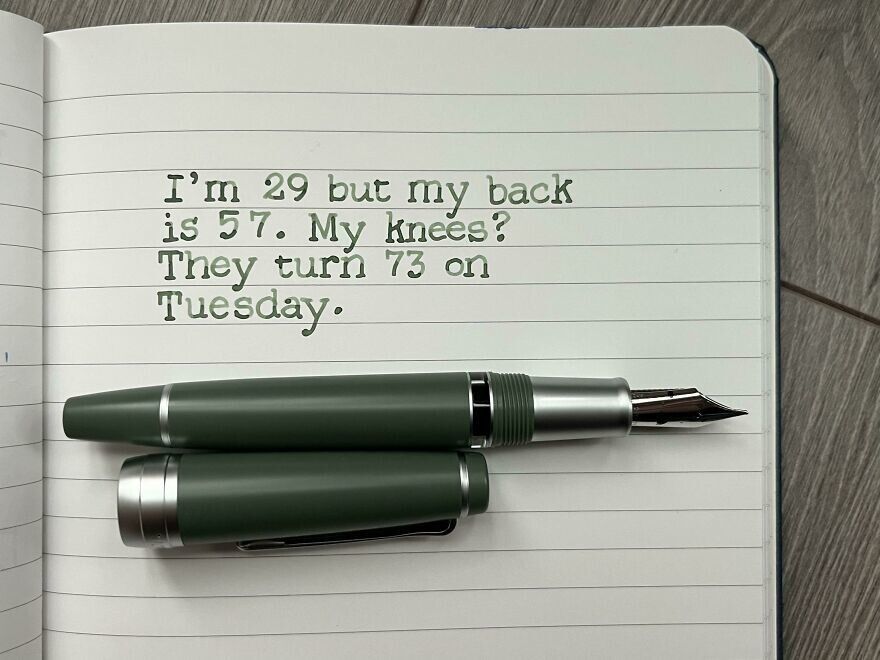 I'm 29 but my back
is 57. My knees?
They turn 73 on
Tuesday.